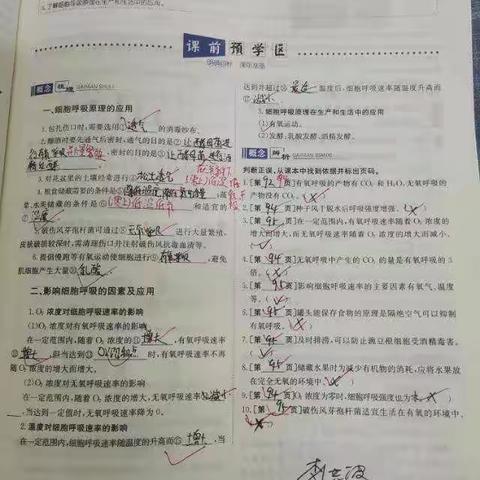 5.了解细胞呼吸原理在生产和生活中的应用。
课前预学区
概念梳理
一、细胞呼吸原理的应用
1.包扎伤口时,需要选用①透气的消毒纱布。
2.酿酒时要先通气后密封,通气的目的是②
,密封的目的是③
3.对花盆里的土壤经常进行④松土透气
4.粮食储藏需要的条件是⑤
水果储藏的条件是⑥ 和适宜的
⑦湿度
破伤风芽孢杆菌可通过⑧ 进行大量繁殖,
皮肤破损较深时,需清理伤口并注射破伤风抗毒血清等。
6.提倡慢跑等有氧运动使细胞进行⑨ ,避免
肌细胞产生大量⑩乳酸
二、影响细胞呼吸的因素及应用
1. O₂ 浓度对细胞呼吸速率的影响
(1)O₂ 浓度对有氧呼吸速率的影响
在一定范围内,随着 O₂ 浓度的增大,有氧呼吸速率
增大,但当达到 时,有氧呼吸速率不再
随 O₂ 浓度的增大而增大。
(2)O₂ 浓度对无氧呼吸速率的影响
在一定范围内,随着 O₂ 浓度的增大,无氧呼吸速率减小
,当达到一定值时,无氧呼吸速率降为 0。
2. 温度对细胞呼吸速率的影响
在一定范围内,细胞呼吸速率随温度的升高而增大,当
达到并超过最适温度后,细胞呼吸速率随温度升高而
减小
3.细胞呼吸原理在生产和生活中的应用
(1)有氧运动。
(2)发酵,乳酸发酵、酒精发酵。
概念辨析
判断正误,从课本中找到依据并标出页码。
1.[第92页]有氧呼吸的产物有 CO₂ 和 H₂O,无氧呼吸的
产物没有 CO₂。(×)
2.[第94页]种子风干脱水后呼吸强度增强。(×)
3.[第95页]在一定范围内,有氧呼吸速率随着 O₂ 浓度的
增大而增大,而无氧呼吸速率随着 O₂ 浓度的增大而减小。
4.[第94页]无氧呼吸中产生的 CO₂ 的量是有氧呼吸的 3
倍。
5.[第95页]影响细胞呼吸速率的主要因素有氧气、温度
等。
6.[第95页]罐头能保存食物的原理是隔绝空气可以抑制
有氧呼吸。
7.[第95页]及时排涝,可以防止淹豆根细胞受酒精毒害。
8.[第95页]储藏水果时为减少有机物的消耗,应将水果放
在完全无氧的环境中。(×)
9.[第94页]O₂ 浓度为零时,细胞呼吸强度也为零。(×)
10.[第95页]破伤风芽孢杆菌适宜生活在有氧的环境中。
(×)